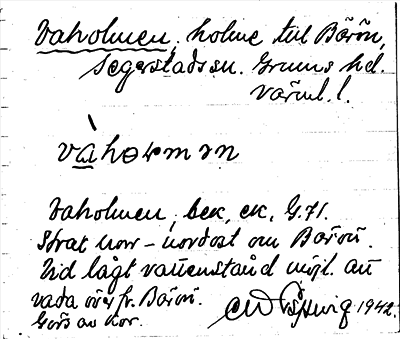 Vaholmen, holme till Bärön,
Segerstads sn. Grums hd.
Värml. l.
vàhoɽmən
Vaholmen, bek, ek, G.71.
Strax norr – nordost om Bärön.
Vid lågt vattenstånd möjl. att
vada över fr. Bärön.
Görs av kor. 1942.